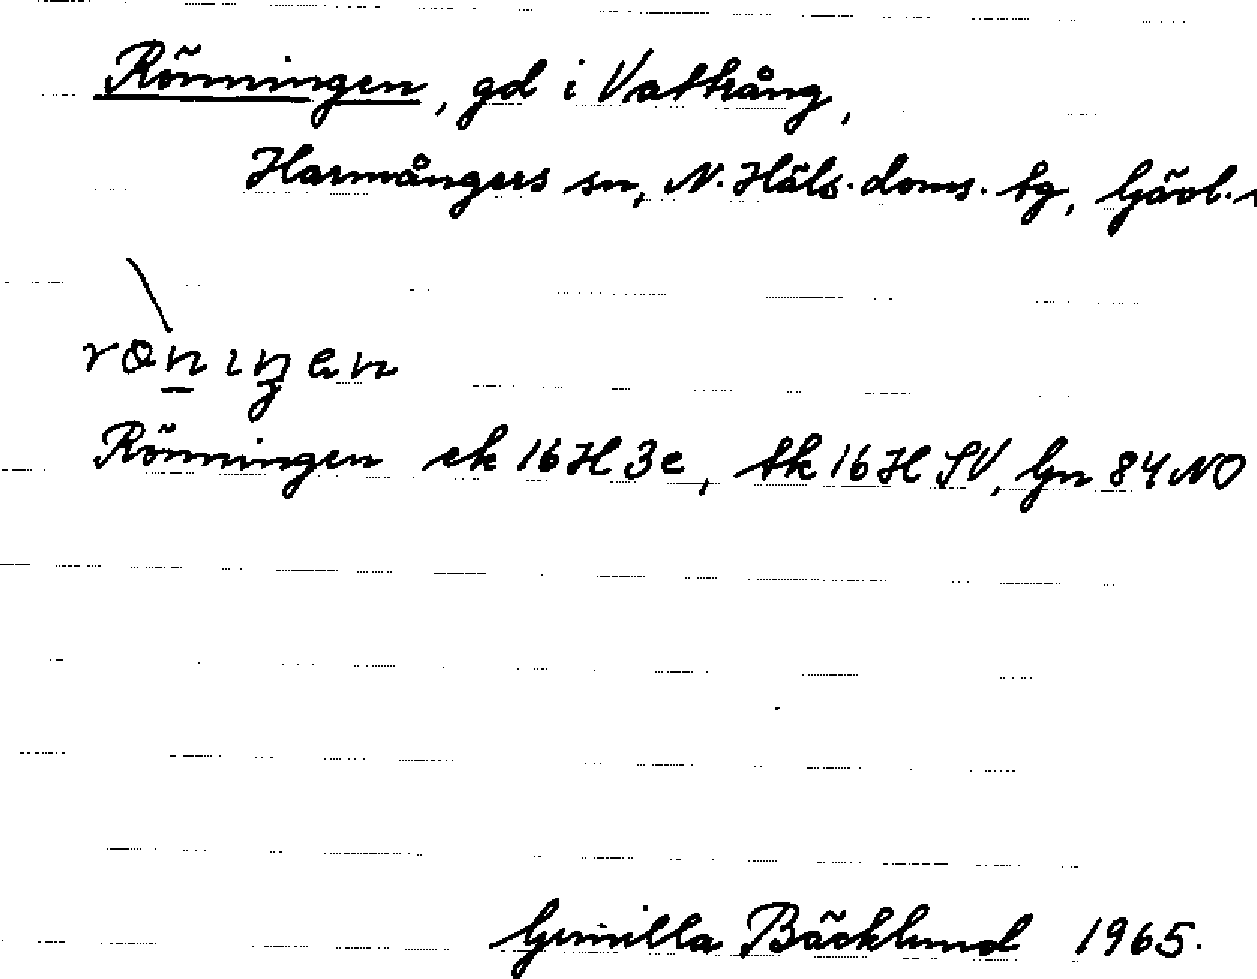 Rönningen, gd i Vattrång,
Harmångers sn, N. Häls. doms. tg, Gävl.
Rönningen ek 16H 3e, tk 16H SV, Gn 84 NO
Gunilla Bäcklund 1965.